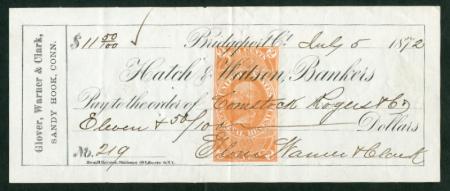 Glover, Warner & Clark,
SANDY HOOK, CONN.
$11 50/100
Bridgeport Ct. July 5 1872
Hatch & Watson, Bankers
Pay to the order of Comstock Rogers & Co
Eleven & 50/100 Dollars
No. 219
Glover Warner & Clark